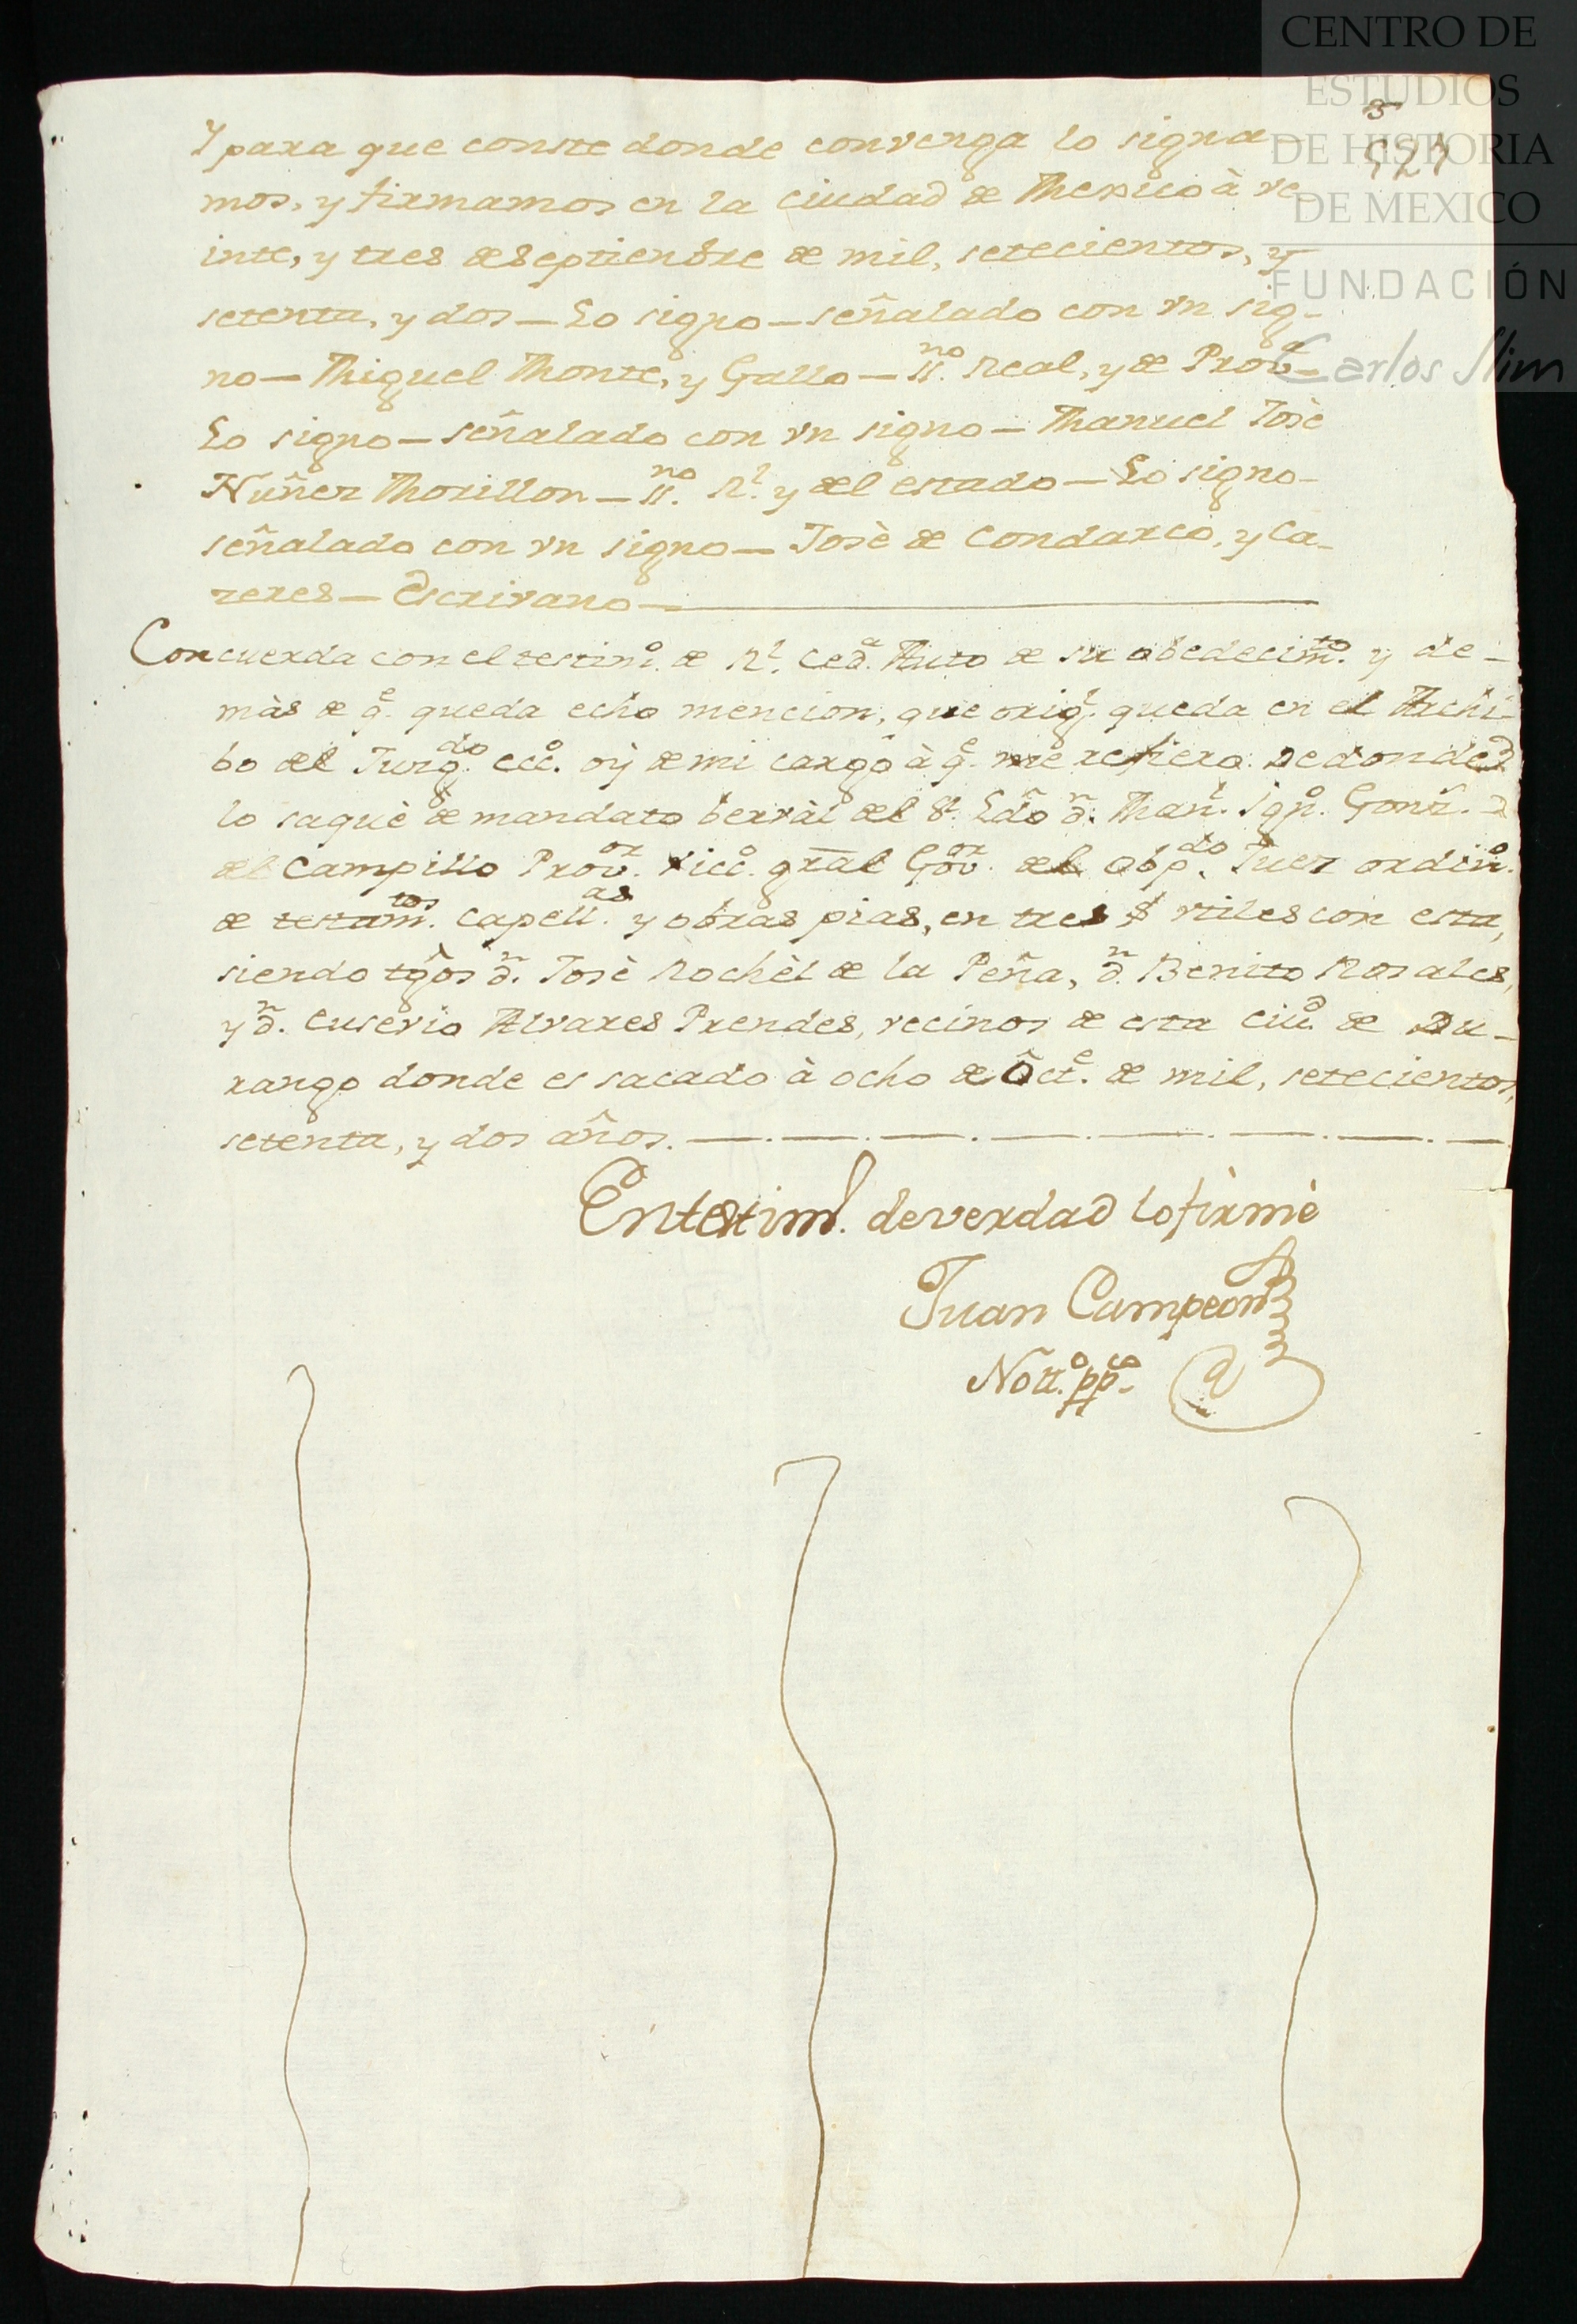 CENTRO DE
ESTUDIOS
DE HISTORIA
DE MEXICO
FUNDACIÓN
Carlos Slim
Y para que conste donde convenga lo signa-
mos, y firmamos en la Ciudad de Mexico à ve-
inte, y tres de Septiembre de mil, setecientos, y
setenta, y dos — Lo signo — señalado con vn sig-
no — Miguel Monte, y Gallo — SS.no Real, y de Prova —
Lo signo — señalado con vn signo — Manuel Josè
Nuñez Morillon — SS.no Rl. y del estado — Lo signo —
señalado con vn signo — Josè de Condarco, y Ca-
zeres — Escrivano —
Concuerda con el testimo. de Rl. Ceda. Auto de su obedecimto. y de-
màs de qe. queda echo mencion, que origl. queda en el Archi-
bo del Juzgdo. ecco. oỳ de mi cargo à qe. me refiero. De donde
lo saquè de mandato berval del Sr. Ldo Dn. Manl. Igno. Gonz.
del Campillo Provor. Vicco. gral Govor. del Obpdo. Juez ordino.
de testamtos. capellas. y obras pias, en tres f vtiles con esta,
siendo tgos Dn. Josè Rochèl de la Peña, Dn. Benito Rosales,
y Dn. Euserio Alvares Prendes, vecinos de esta ciud. de Du-
rango donde es sacado à ocho de Octe. de mil, setecientos,
setenta, y dos años.
En testimo. de verdad lo firmè
Juan Campeon
Nottº. ppco.